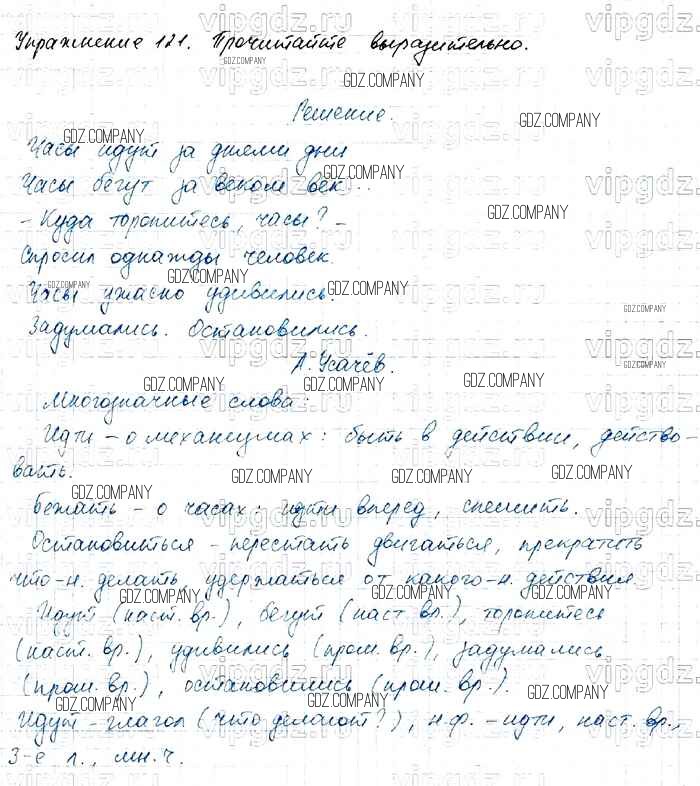 Упражнение 121. Прочитайте выразительно.
Решение.
Часы идут за днеми дни
Часы бегут за веком век...
- Куда торопитесь, часы? -
Спросил однажды человек.
Часы ужасно удивились.
Задумались. Остановились.
А. Усачёв.
Многозначные слова:
Идти - о механизмах: быть в действии, действо-
вать.
Бежать - о часах: идти вперед, спешить.
Остановиться - перестать двигаться, прекратить
что-н. делать, удержаться от какого-н. действия.
Идут (наст. вр.), бегут (наст. вр.), торопитесь
(наст. вр.), удивились (прош. вр.), задумались
(прош. вр.), остановились (прош. вр.).
Идут - глагол (что делают?), н.ф. - идти, наст. вр.,
3-е л., мн.ч.